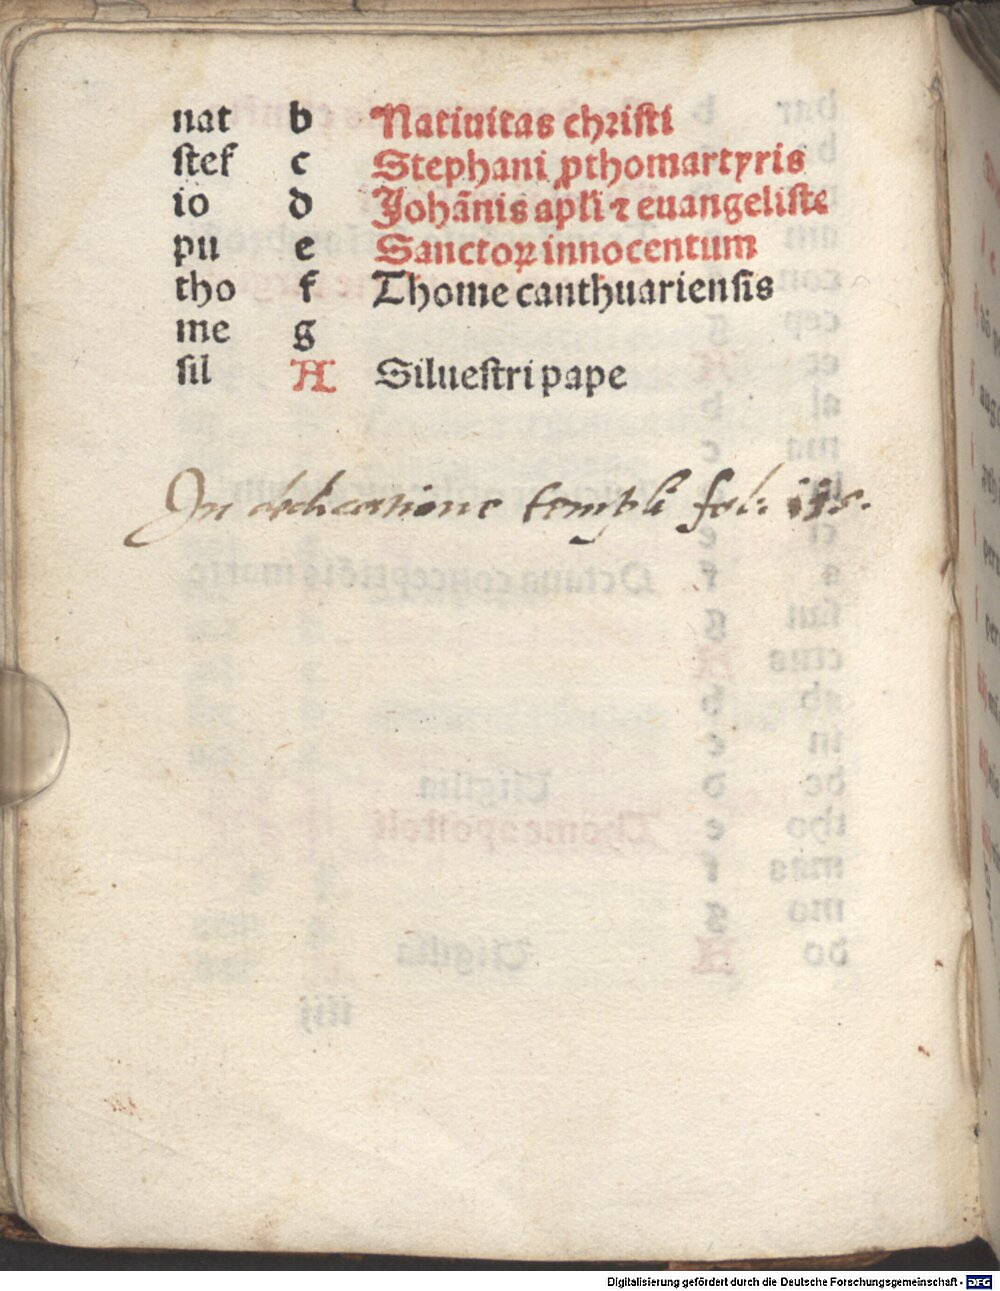 nat b Natiuitas christi
stef c Stephani ꝓthomartyris
io d Johānis apłi ⁊ euangeliste
pu e Sanctoꝝ innocentum
tho f Thome canthuariensis
me g
sil A Siluestri pape
In dedicatione templi fol:
Digitalisierung gefördert durch die Deutsche Forschungsgemeinschaft - DFG